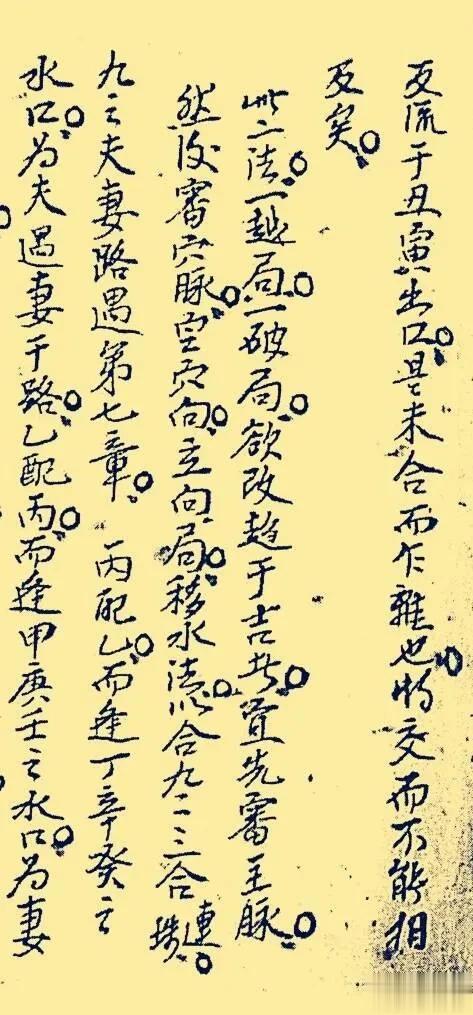 反流于丑寅出口是未合而乍離也將交而不能相
及矣
此二法一越局一破局欲改趨于吉者宜先審主脉
然後審穴脉定穴向立向局移水法以合九二三合連珠
九三夫妻路遇第七章 丙配乙而逢丁辛癸之
水口為夫遇妻于路乙配丙而逢甲庚壬之水口為妻